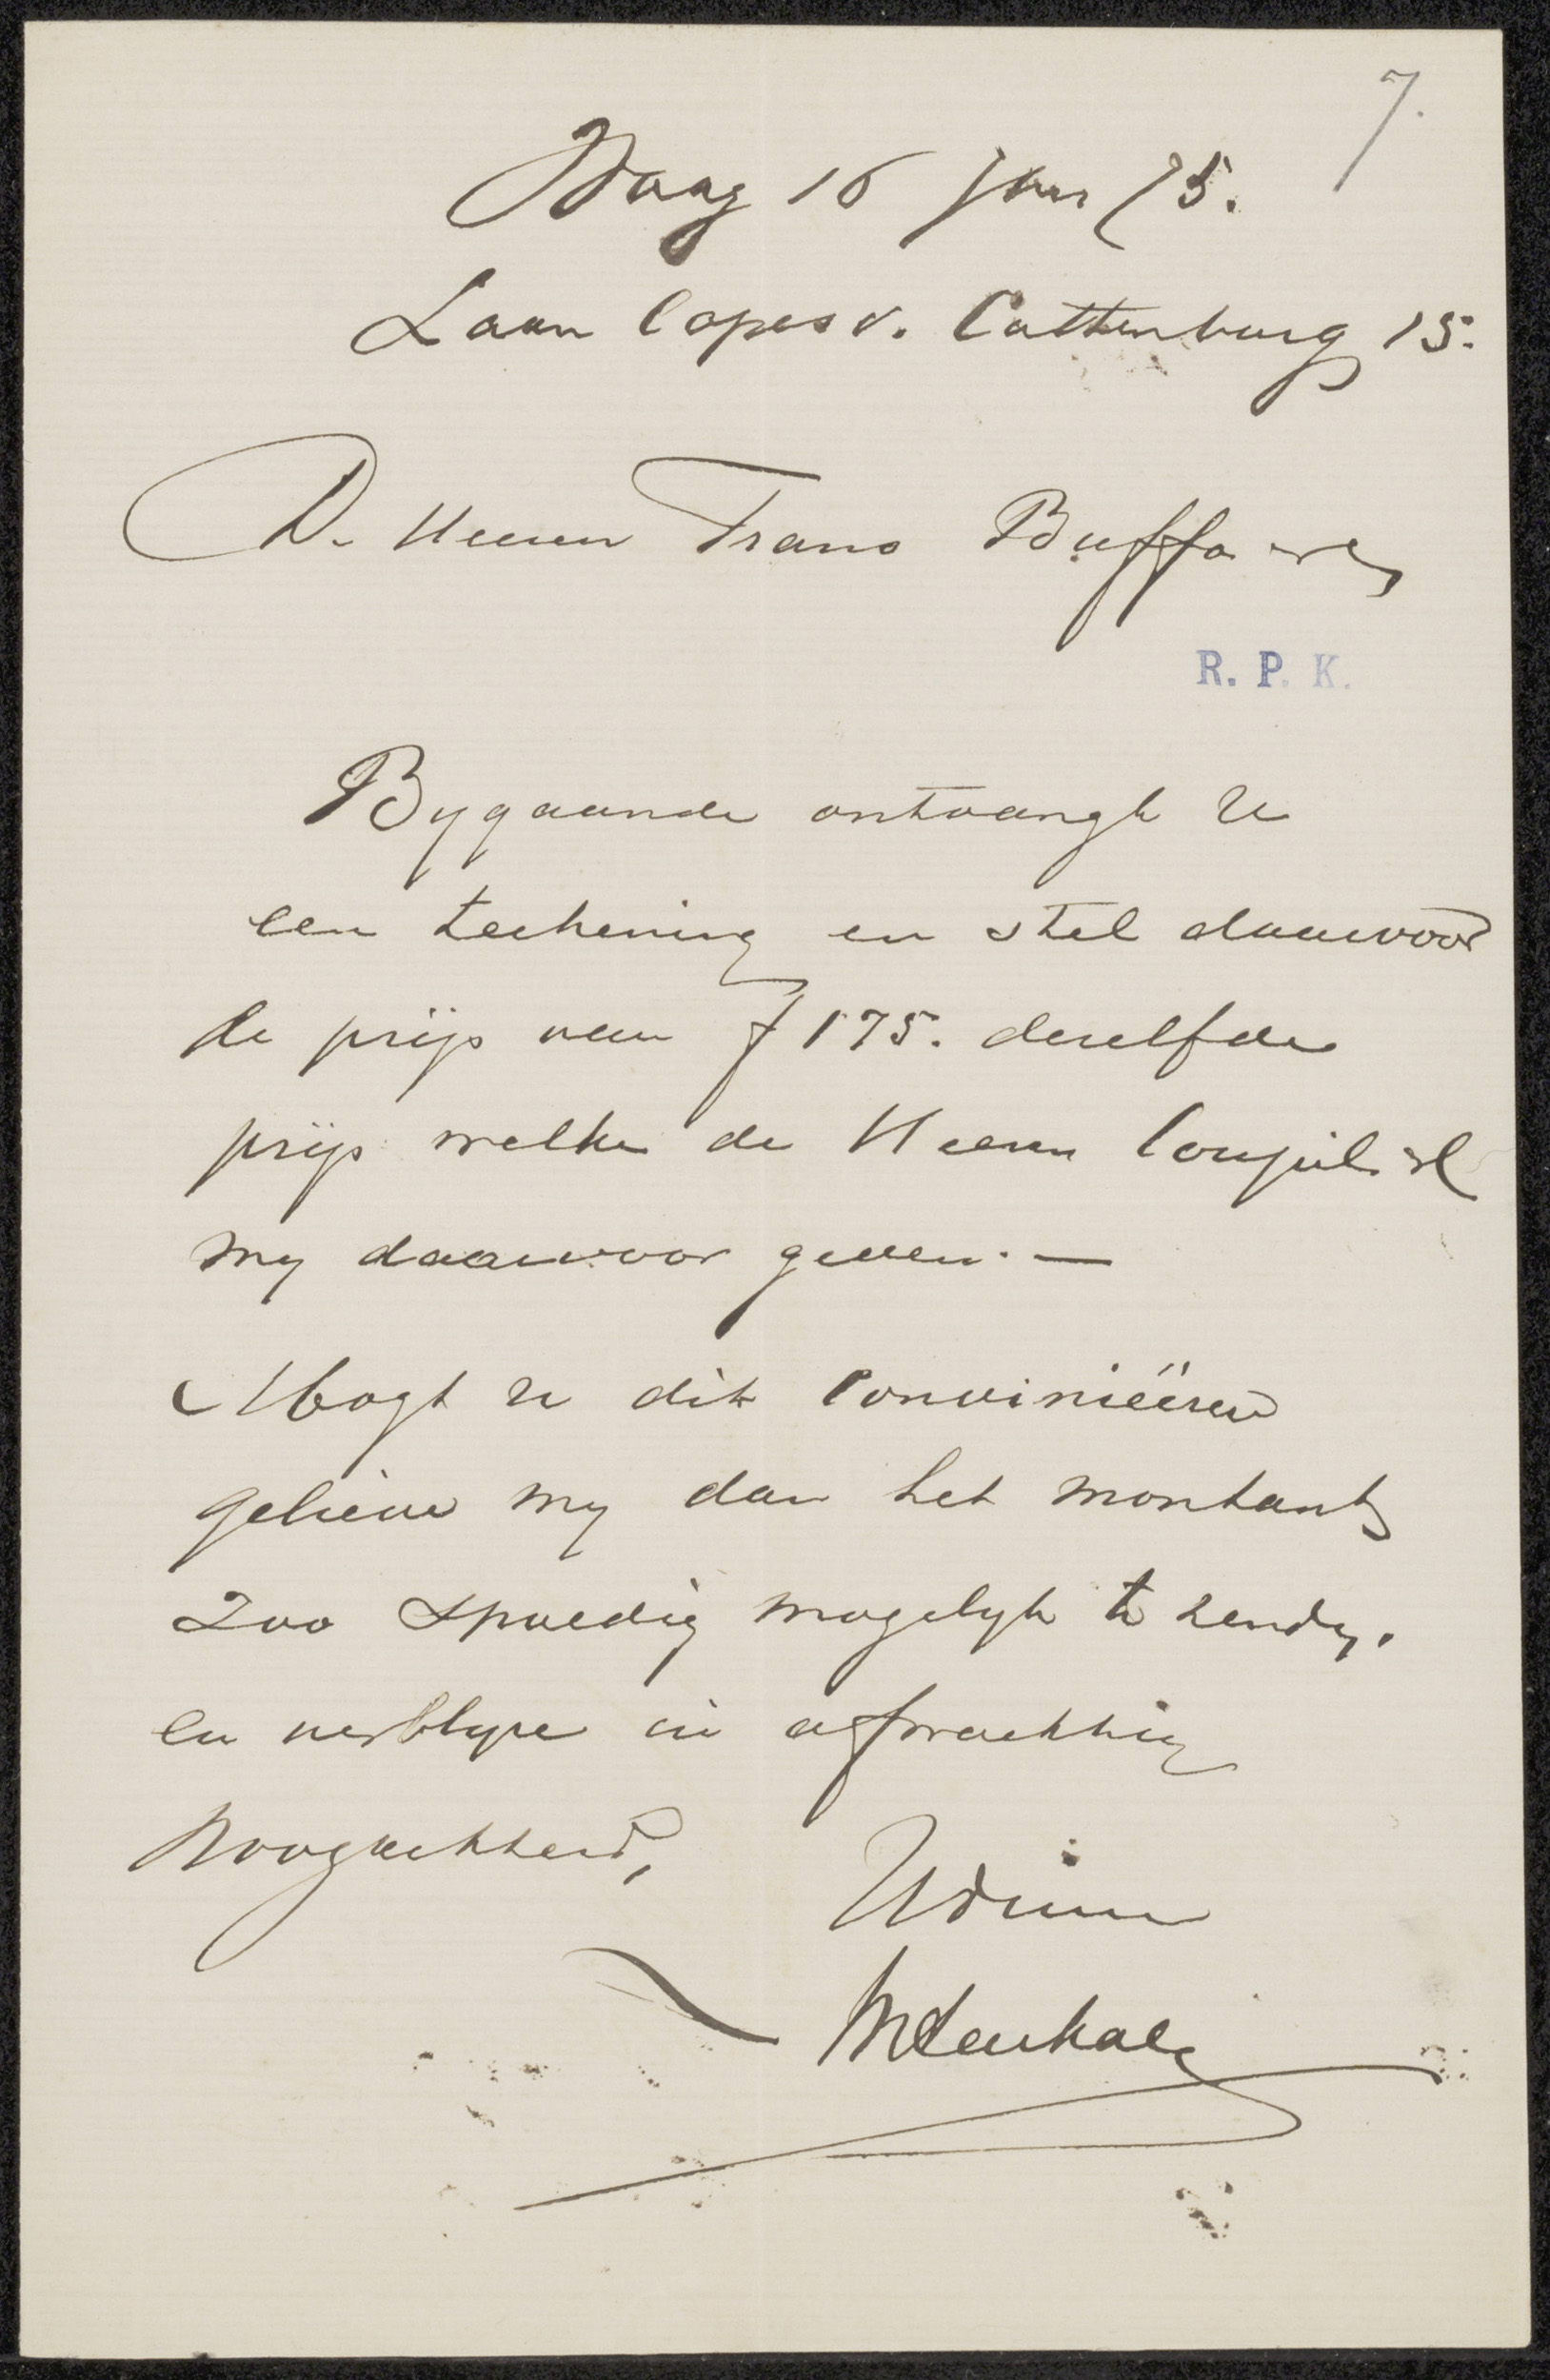 7.
Haag 16 Jan 75.
Laan Copes v. Cattenburg 15.
De Heeren Frans Buffa
R. P. K.
Bygaande ontvangt U
een teekening en stel daarvoor
de prijs van f 175. deselfde
prijs welke de Heeren Goupil &
my daarvoor geven. —
Mogt U dit Conviniëeren
gelieve my dan het montant
Zoo Spoedig mogelyk te zenden.
en verblyve in afwachting
Hoogachtend,
UdDienr